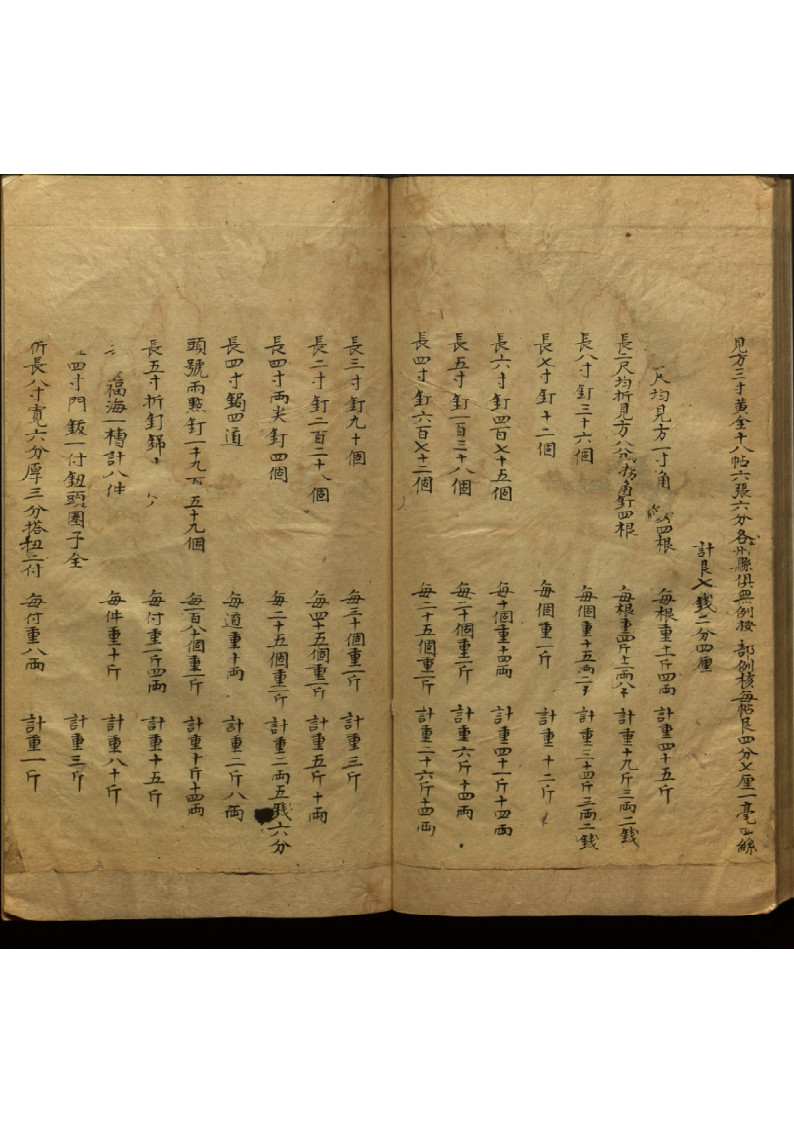 見方三寸黃金十八帖六張六分各州縣俱無例按 部例核每帖艮四分七厘一毫 絲
計艮七錢二分四厘
尺均見方一寸角 四根 每根重十一斤四兩 計重四十五斤
長二尺均折見方八分拐角釘四根 每根重四斤十二兩八 計重十九斤三兩二錢
長八寸釘三十六個 每個重十五兩二 計重三十四斤三兩二錢
長七寸釘十二個 每個重一斤 計重十二斤
長六寸釘四百七十五個 每十個重十四兩 計重四十一斤十四兩
長五寸釘一百三十八個 每二十個重一斤 計重六斤十四兩
長四寸釘六百七十二個 每二十五個重一斤 計重二十六斤十四兩
長三寸釘九十個 每三十個重一斤 計重三斤
長二寸釘二百二十八個 每四十五個重一斤 計重五斤十兩
長四寸兩尖釘四個 每二十五個重一斤 計重二兩五錢六分
長四寸鋦四道 每道重十兩 計重二斤八兩
頭號兩點釘一千九百五十九個 每一百八十個重一斤 計重十斤十四兩
長五寸折釘錦十 每付重一斤四兩 計重十五斤
福海一槽計八件 每件重十斤 計重八十斤
四寸門鈑一付鈕頭圈子全 計重三斤
所長八寸寬六分厚三分搭扭二付 每付重八兩 計重一斤